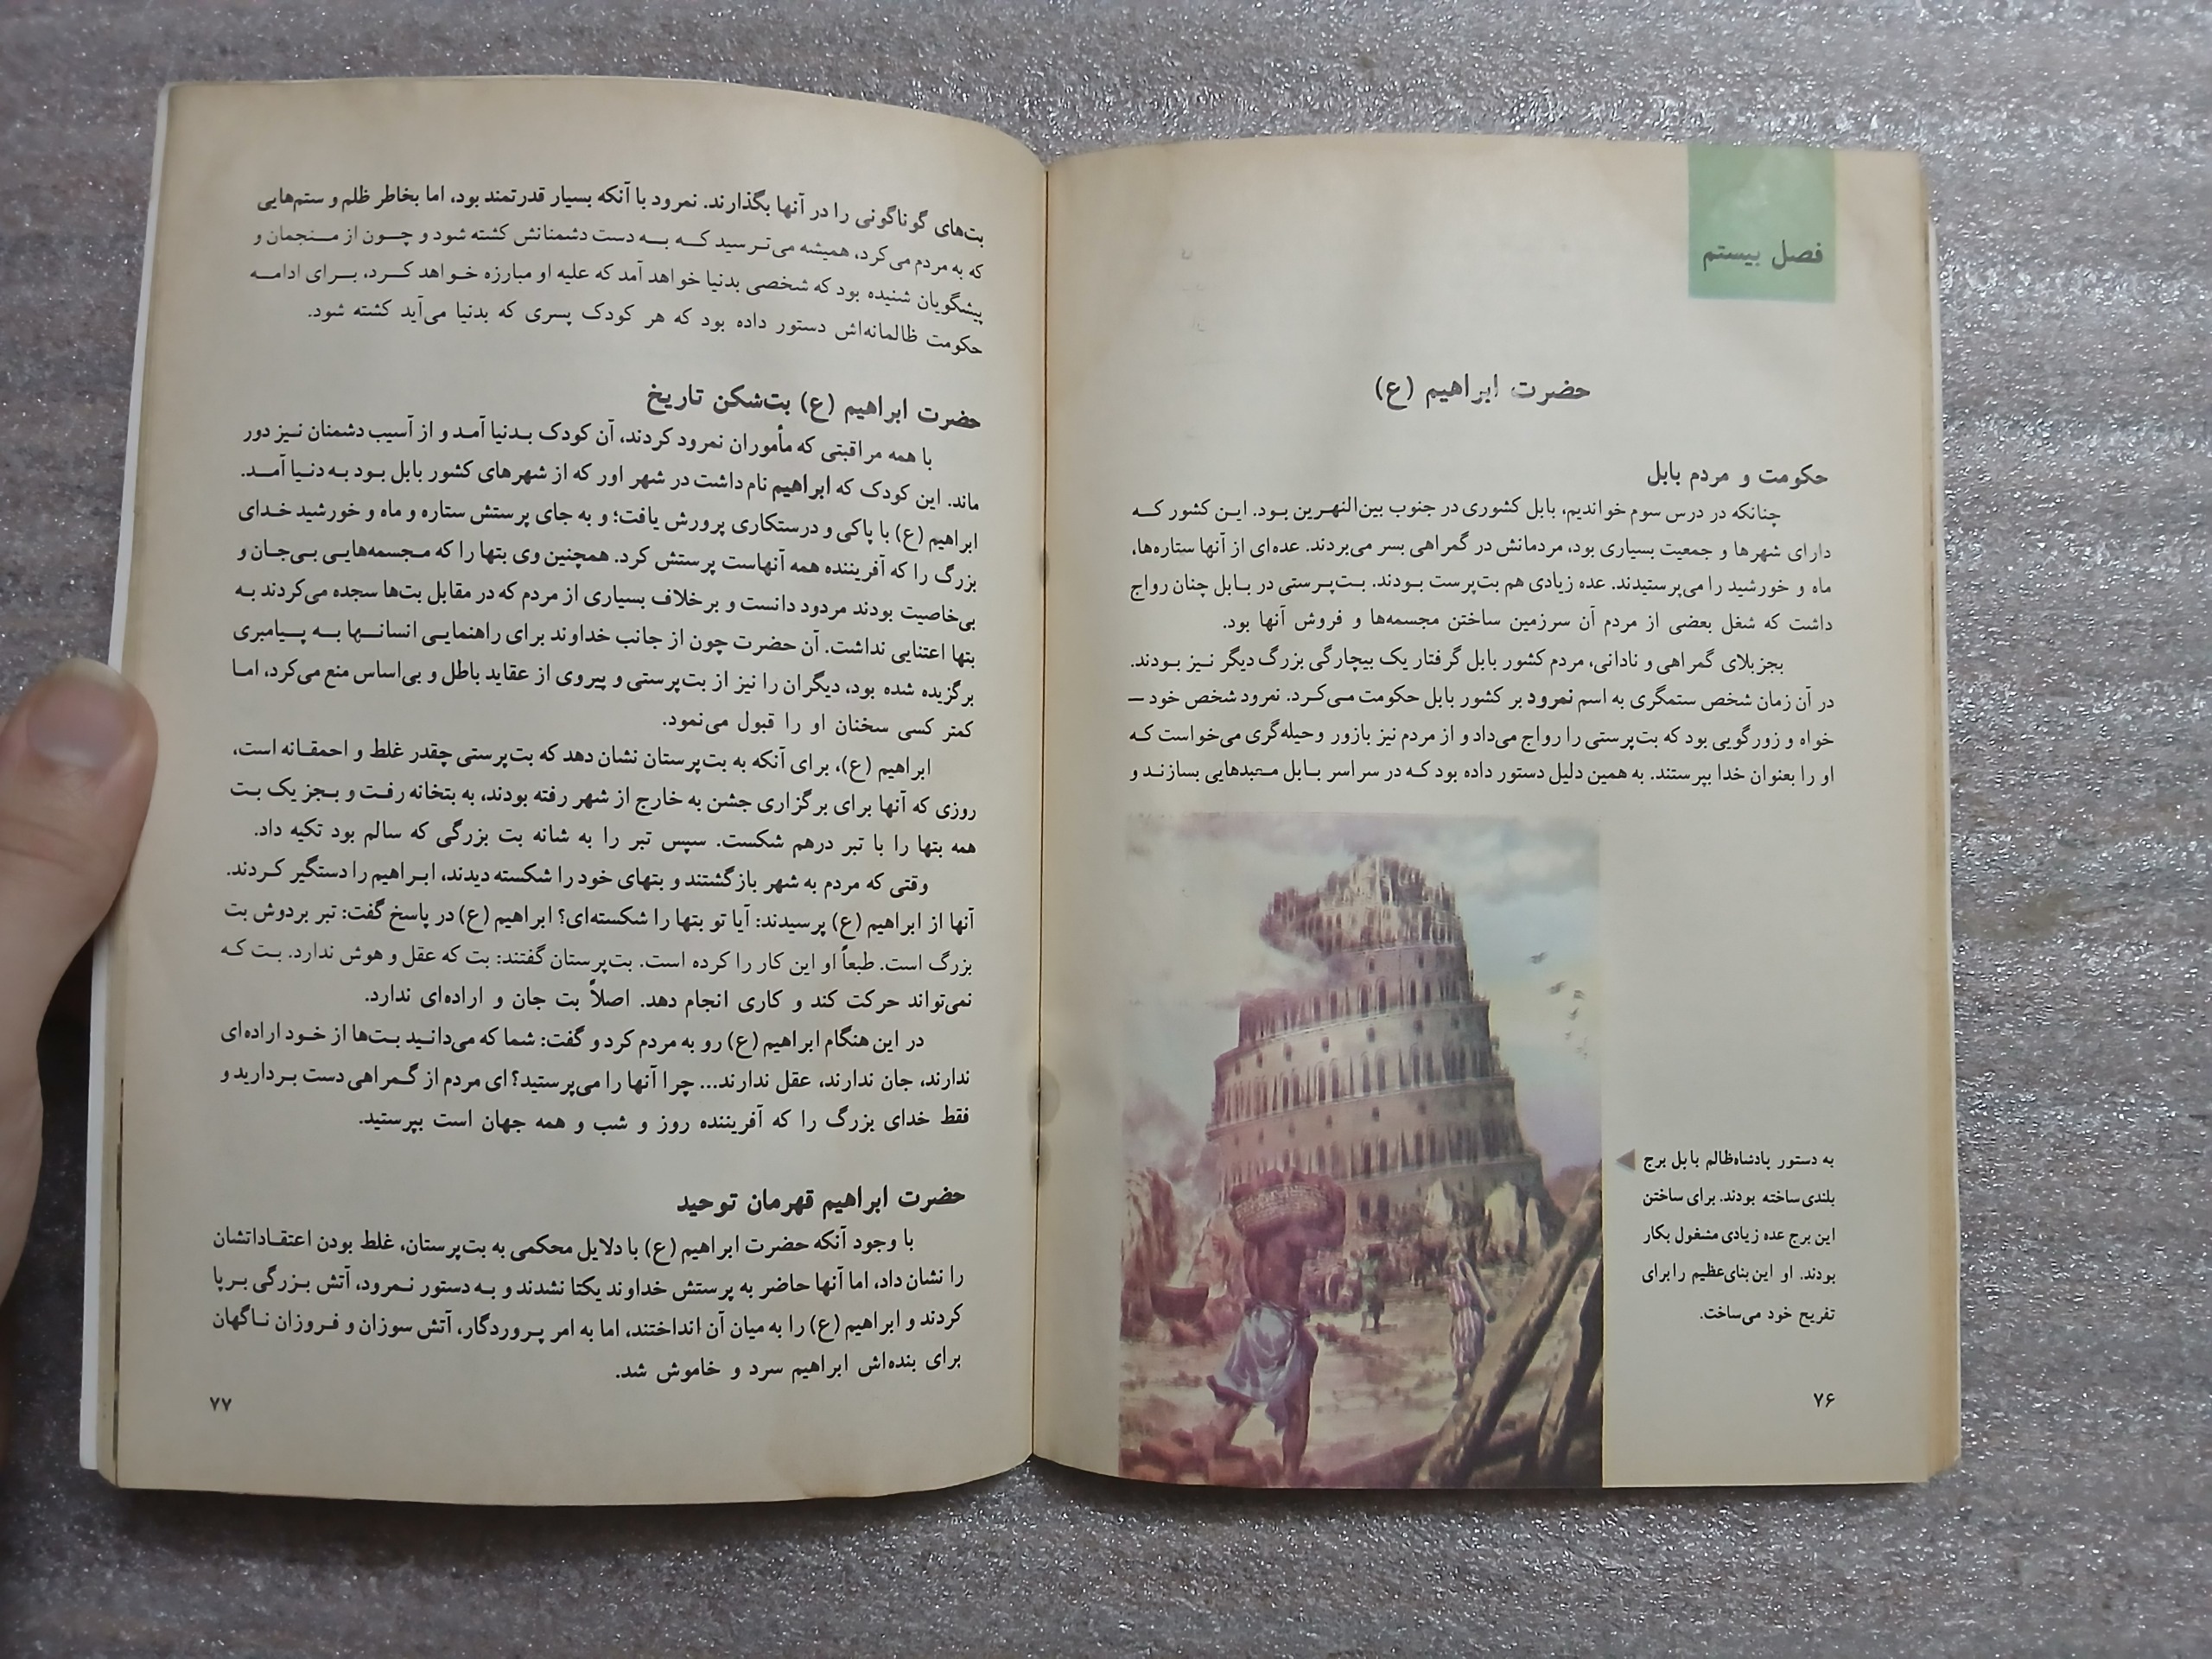 فصل بیستم
حضرت ابراهیم (ع)
حکومت و مردم بابل
چنانکه در درس سوم خواندیم، بابل کشوری در جنوب بین‌النهرین بود. این کشور که
دارای شهرها و جمعیت بسیاری بود، مردمانش در گمراهی بسر می‌بردند. عده‌ای از آنها ستاره‌ها،
ماه و خورشید را می‌پرستیدند. عده زیادی هم بت‌پرست بودند. بت‌پرستی در بابل چنان رواج
داشت که شغل بعضی از مردم آن سرزمین ساختن مجسمه‌ها و فروش آنها بود.
بجز بلای گمراهی و نادانی، مردم کشور بابل گرفتار یک بیچارگی بزرگ دیگر نیز بودند.
در آن زمان شخص ستمگری به اسم نمرود بر کشور بابل حکومت می‌کرد. نمرود شخص خود –
خواه و زورگویی بود که بت‌پرستی را رواج می‌داد و از مردم نیز بازور وحیله‌گری می‌خواست که
او را بعنوان خدا بپرستند. به همین دلیل دستور داده بود که در سراسر بابل معبدهایی بسازند و
به دستور پادشاه‌ظالم بابل برج
بلندی ساخته بودند. برای ساختن
این برج عده زیادی مشغول بکار
بودند. او این بنای‌عظیم را برای
تفریح خود می‌ساخت.
۷۶
بت‌های گوناگونی را در آنها بگذارند. نمرود با آنکه بسیار قدرتمند بود، اما بخاطر ظلم و ستم‌هایی
که به مردم می‌کرد، همیشه می‌ترسید که به دست دشمنانش کشته شود و چون از منجمان و
پیشگویان شنیده بود که شخصی بدنیا خواهد آمد که علیه او مبارزه خواهد کرد، برای ادامه
حکومت ظالمانه‌اش دستور داده بود که هر کودک پسری که بدنیا می‌آید کشته شود.
حضرت ابراهیم (ع) بت‌شکن تاریخ
با همه مراقبتی که مأموران نمرود کردند، آن کودک بدنیا آمد و از آسیب دشمنان نیز دور
ماند. این کودک که ابراهیم نام داشت در شهر اور که از شهرهای کشور بابل بود به دنیا آمد.
ابراهیم (ع) با پاکی و درستکاری پرورش یافت؛ و به جای پرستش ستاره و ماه و خورشید خدای
بزرگ را که آفریننده همه آنهاست پرستش کرد. همچنین وی بتها را که مجسمه‌هایی بی‌جان و
بی‌خاصیت بودند مردود دانست و برخلاف بسیاری از مردم که در مقابل بت‌ها سجده می‌کردند به
بتها اعتنایی نداشت. آن حضرت چون از جانب خداوند برای راهنمایی انسانها به پیامبری
برگزیده شده بود، دیگران را نیز از بت‌پرستی و پیروی از عقاید باطل و بی‌اساس منع می‌کرد، اما
کمتر کسی سخنان او را قبول می‌نمود.
ابراهیم (ع)، برای آنکه به بت‌پرستان نشان دهد که بت‌پرستی چقدر غلط و احمقانه است،
روزی که آنها برای برگزاری جشن به خارج از شهر رفته بودند، به بتخانه رفت و بجز یک بت
همه بتها را با تبر درهم شکست. سپس تبر را به شانه بت بزرگی که سالم بود تکیه داد.
وقتی که مردم به شهر بازگشتند و بتهای خود را شکسته دیدند، ابراهیم را دستگیر کردند.
آنها از ابراهیم (ع) پرسیدند: آیا تو بتها را شکسته‌ای؟ ابراهیم (ع) در پاسخ گفت: تبر بردوش بت
بزرگ است. طبعاً او این کار را کرده است. بت‌پرستان گفتند: بت که عقل و هوش ندارد. بت که
نمی‌تواند حرکت کند و کاری انجام دهد. اصلاً بت جان و اراده‌ای ندارد.
در این هنگام ابراهیم (ع) رو به مردم کرد و گفت: شما که می‌دانید بت‌ها از خود اراده‌ای
ندارند، جان ندارند، عقل ندارند... چرا آنها را می‌پرستید؟ ای مردم از گمراهی دست بردارید و
فقط خدای بزرگ را که آفریننده روز و شب و همه جهان است بپرستید.
حضرت ابراهیم قهرمان توحید
با وجود آنکه حضرت ابراهیم (ع) با دلایل محکمی به بت‌پرستان، غلط بودن اعتقاداتشان
را نشان داد، اما آنها حاضر به پرستش خداوند یکتا نشدند و به دستور نمرود، آتش بزرگی برپا
کردند و ابراهیم (ع) را به میان آن انداختند، اما به امر پروردگار، آتش سوزان و فروزان ناگهان
برای بنده‌اش ابراهیم سرد و خاموش شد.
۷۷